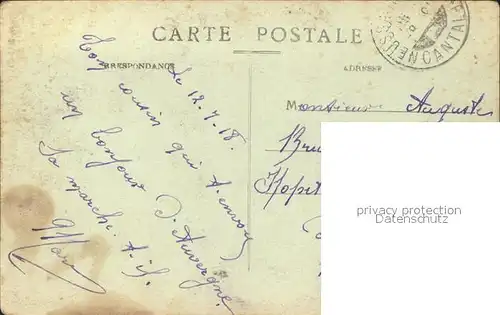 CARTE POSTALE
CORRESPONDANCE
ADRESSE
CANTAL
Le 12-7-18.
Ton cousin qui t'envoie
un bonjour d'Auvergne.
Sa marche. t-il.
Marc
Monsieur Auguste
Bru
Hopit
privacy protection
Datenschutz